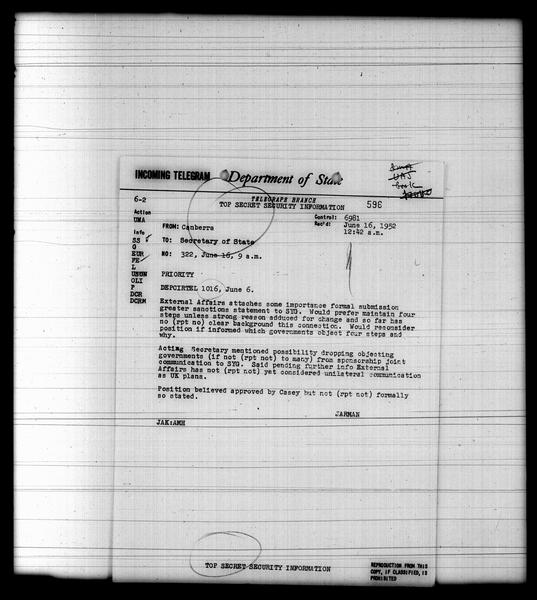 INCOMING TELEGRAM Department of State
TELEGRAPH BRANCH
6-2 TOP SECRET SECURITY INFORMATION 596
Action Control: 6981
UNA Rec'd: June 16, 1952
FROM: Canberra 12:42 a.m.
Info
SS TO: Secretary of State
G
EUR NO: 322, June 16, 9 a.m.
FE
L
USUN PRIORITY
OLI
P DEPCIRTEL 1016, June 6.
DCR
DCRM External Affairs attaches some importance formal submission
greater sanctions statement to SYG. Would prefer maintain four
steps unless strong reason adduced for change and so far has
no (rpt no) clear background this connection. Would reconsider
position if informed which governments object four steps and
why.
Acting Secretary mentioned possibility dropping objecting
governments (if not (rpt not) to many) from sponsorship joint
communication to SYG. Said pending further info External
Affairs has not (rpt not) yet considered unilateral communication
as UK plans.
Position believed approved by Casey but not (rpt not) formally
so stated.
JARMAN
JAK:AMH
TOP SECRET SECURITY INFORMATION
REPRODUCTION FROM THIS
COPY, IF CLASSIFIED, IS
PROHIBITED